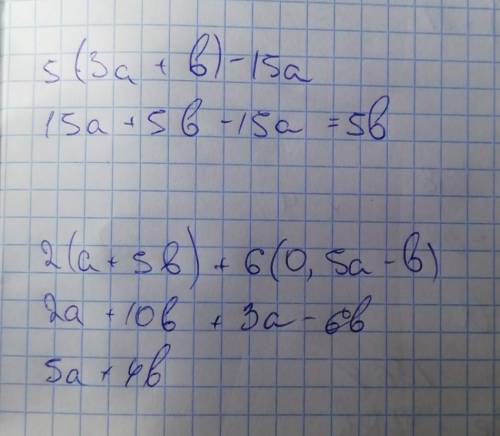 5(3a + b) - 15a
15a + 5b - 15a = 5b
2(a + 5b) + 6(0,5a - b)
2a + 10b + 3a - 6b
5a + 4b